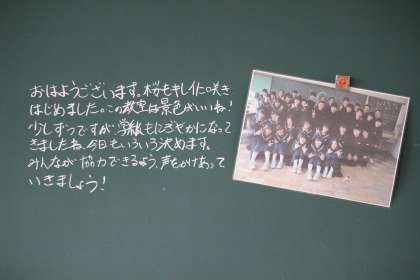 おはようございます。桜もキレイに咲き
はじめました。この教室は景色がいいね!
少しずつですが、学級もにぎやかになって
きましたね。今日もいろいろ決めます。
みんなが協力できるよう、声をかけあって
いきましょう!